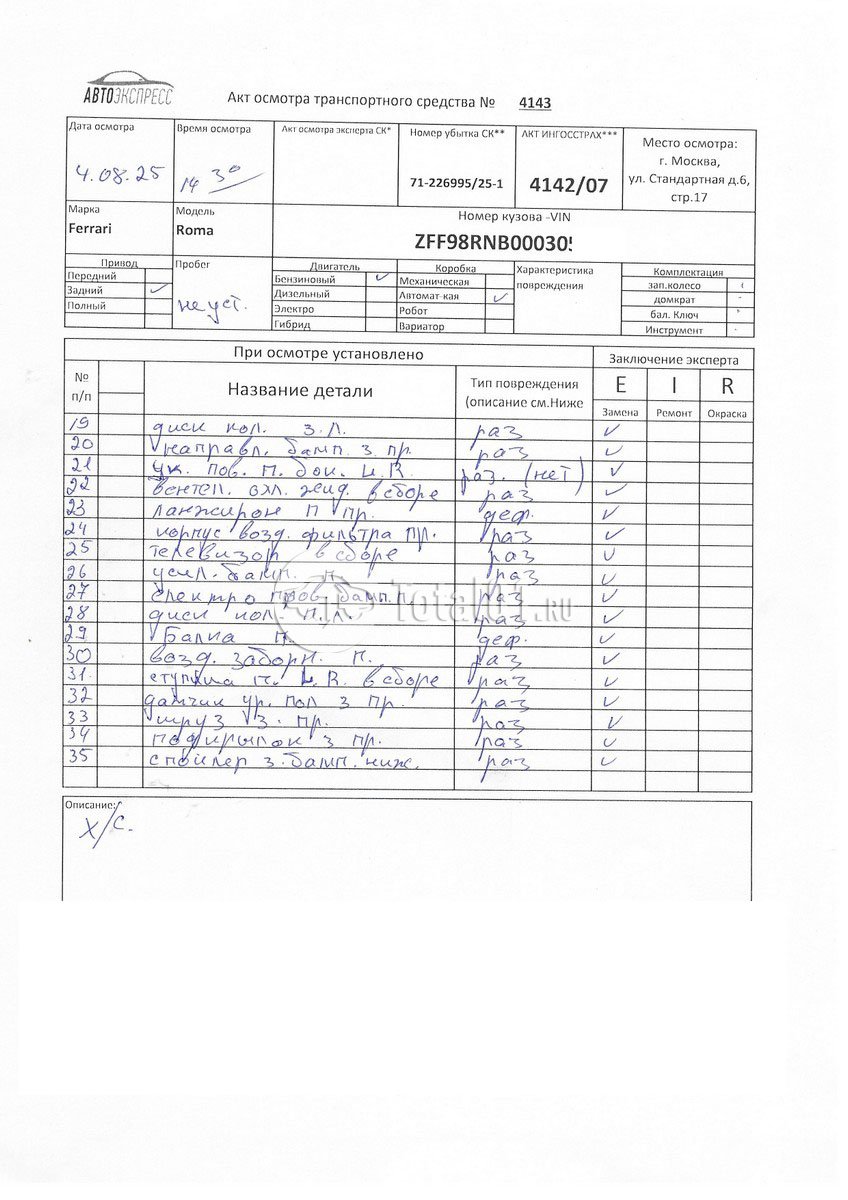 АВТОЭКСПРЕСС
Акт осмотра транспортного средства № 4143
Дата осмотра
4.08.25
Время осмотра
14 30
Акт осмотра эксперта СК*
Номер убытка СК**
71-226995/25-1
АКТ ИНГОССТРАХ***
4142/07
Место осмотра:
г. Москва,
ул. Стандартная д.6,
стр.17
Марка
Ferrari
Модель
Roma
Номер кузова -VIN
ZFF98RNB000305
Привод
Передний
Задний ✓
Полный
Пробег
не уст.
Двигатель
Бензиновый ✓
Дизельный
Электро
Гибрид
Коробка
Механическая
Автомат-кая ✓
Робот
Вариатор
Характеристика
повреждения
Комплектация
зап.колесо
домкрат -
бал. Ключ
Инструмент -
При осмотре установлено
Заключение эксперта
№
п/п
Название детали
Тип повреждения
(описание см.Ниже
E I R
Замена Ремонт Окраска
19 диск кол. з.л. раз ✓
20 направл. бамп. з. пр. раз ✓
21 ук. пов. п. бок. L.R. раз. (нет) ✓
22 вентел. охл. жид. в сборе раз ✓
23 ланжирон п пр. деф. ✓
24 корпус возд. фильтра пр. раз ✓
25 телевизор в сборе раз ✓
26 усил. бамп. п. раз ✓
27 электро пров. бамп. п раз ✓
28 диск кол. п.л. раз ✓
29 Балка п. деф. ✓
30 возд. заборн. п. раз ✓
31 ступица п. L.R. в сборе раз ✓
32 датчик ур. пол з пр. раз ✓
33 шруз з. пр. раз ✓
34 подкрылок з пр. раз ✓
35 спойлер з. бамп. ниж. раз ✓
Total01.RU
Описание:
х/с.